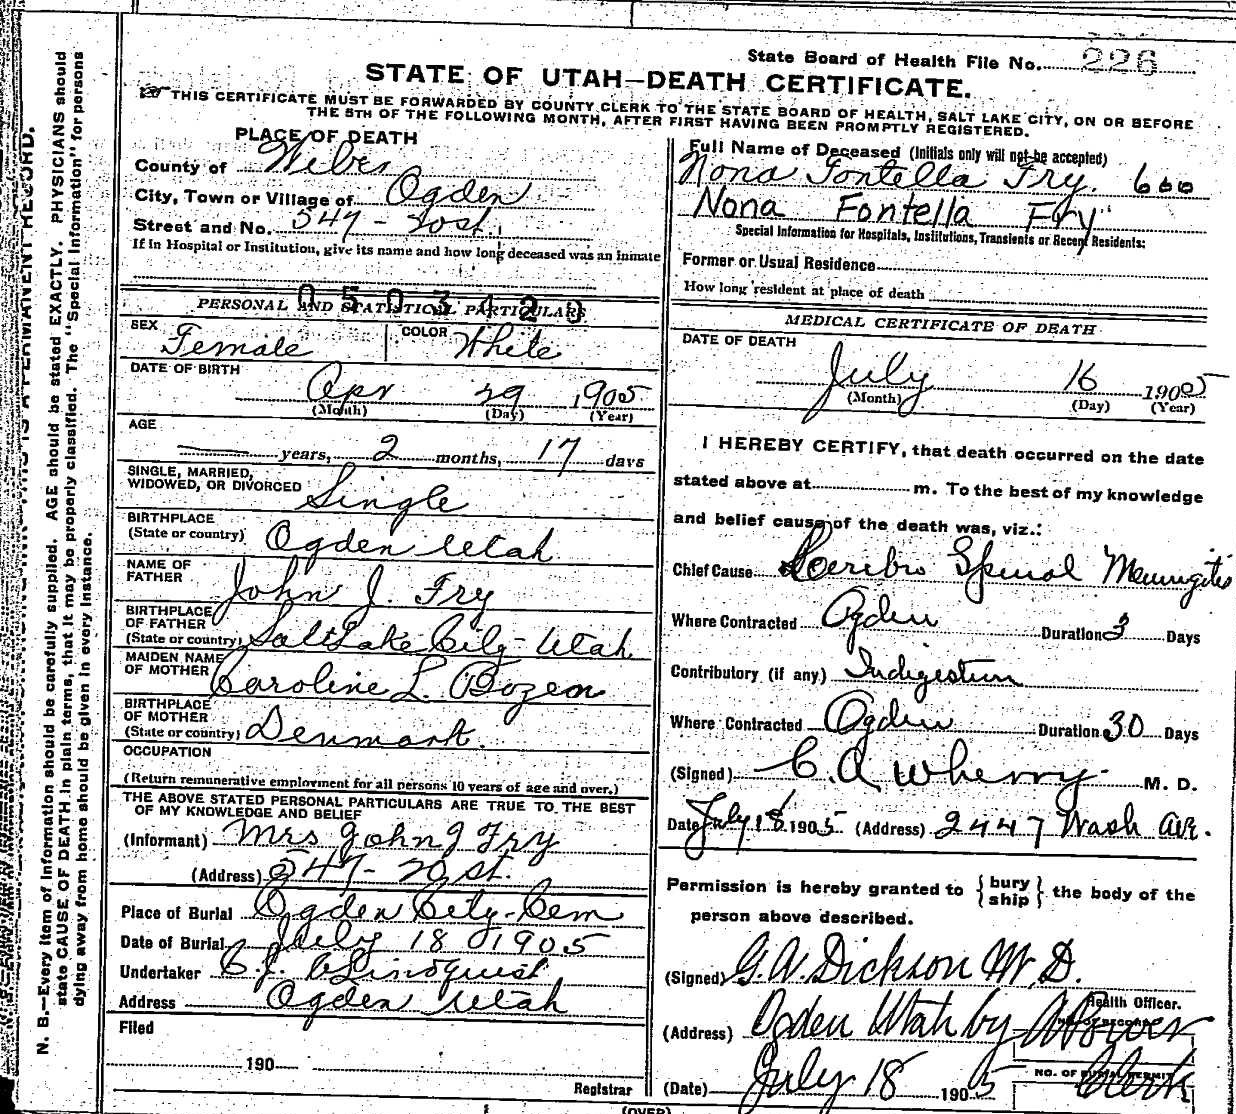 State Board of Health File No. 226
STATE OF UTAH—DEATH CERTIFICATE.
THIS CERTIFICATE MUST BE FORWARDED BY COUNTY CLERK TO THE STATE BOARD OF HEALTH, SALT LAKE CITY, ON OR BEFORE
THE 5TH OF THE FOLLOWING MONTH, AFTER FIRST HAVING BEEN PROMPTLY REGISTERED.
N. B.—Every item of Information should be carefully supplied. AGE should be stated EXACTLY. PHYSICIANS should
state CAUSE OF DEATH in plain terms, that it may be properly classified. The "Special Information" for persons
dying away from home should be given in every instance.
IS A PERMANENT RECORD.
PLACE OF DEATH
County of Weber
City, Town or Village of Ogden
Street and No. 547 - 20 st.
If in Hospital or Institution, give its name and how long deceased was an inmate
0503423
PERSONAL AND STATISTICAL PARTICULARS
SEX Female COLOR White
DATE OF BIRTH
Apr 29 1905
(Month) (Day) (Year)
AGE
— years, 2 months, 17 days
SINGLE, MARRIED,
WIDOWED, OR DIVORCED Single
BIRTHPLACE
(State or country) Ogden Utah
NAME OF
FATHER John J. Fry
BIRTHPLACE
OF FATHER
(State or country) Salt Lake City - Utah
MAIDEN NAME
OF MOTHER Caroline L. Bozen
BIRTHPLACE
OF MOTHER
(State or country) Denmark.
OCCUPATION
(Return remunerative employment for all persons 10 years of age and over.)
THE ABOVE STATED PERSONAL PARTICULARS ARE TRUE TO THE BEST
OF MY KNOWLEDGE AND BELIEF
(Informant) Mrs John J Fry
(Address) 547 - 20 st.
Place of Burial Ogden City - Cem
Date of Burial July 18 1905
Undertaker C. J. A Lindquist
Address Ogden Utah
Filed
190
Registrar
Full Name of Deceased (Initials only will not be accepted)
Nona Fontella Fry. 660
Nona Fontella Fry
Special Information for Hospitals, Institutions, Transients or Recent Residents:
Former or Usual Residence
How long resident at place of death
MEDICAL CERTIFICATE OF DEATH
DATE OF DEATH
July 16 1905
(Month) (Day) (Year)
I HEREBY CERTIFY, that death occurred on the date
stated above at m. To the best of my knowledge
and belief cause of the death was, viz.:
Chief Cause Cerebro Spinal Meningitis
Where Contracted Ogden Duration 3 Days
Contributory (if any) Indigestion
Where Contracted Ogden Duration 30 Days
(Signed) C. A Wherry M. D.
Date July 18 1905 (Address) 2447 Wash Ave.
Permission is hereby granted to {bury ship} the body of the
person above described.
(Signed) G. W. Dickson M. D.
Health Officer.
(Address) Ogden Utah by
NO. OF BURIAL PERMIT Clerk
(Date) July 18 1905
(OVER)